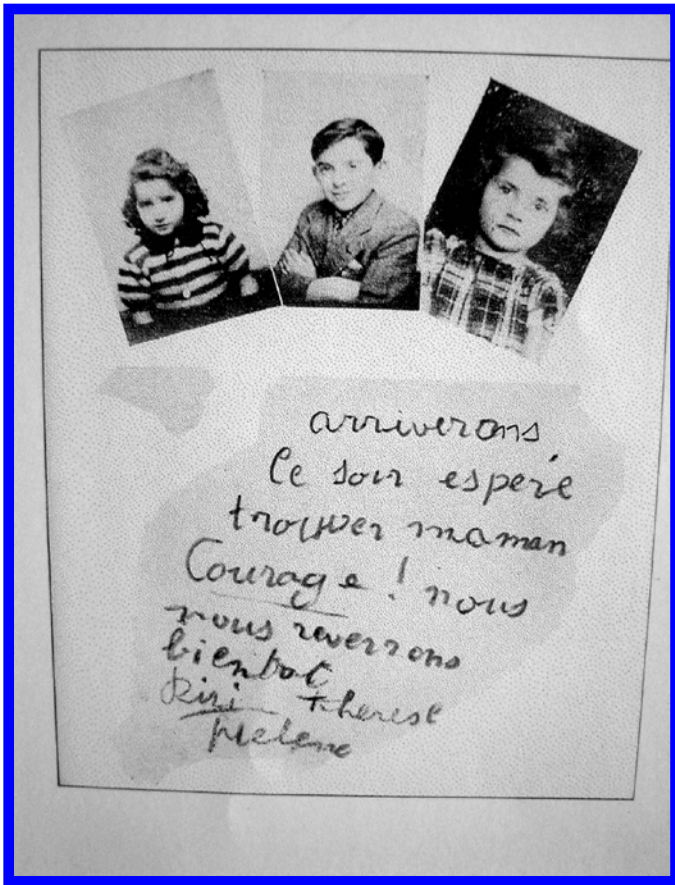 arriverons,
Ce soir espere
trouver maman
Courage ! nous
nous reverrons
bientot
Kiri Therese
Helene